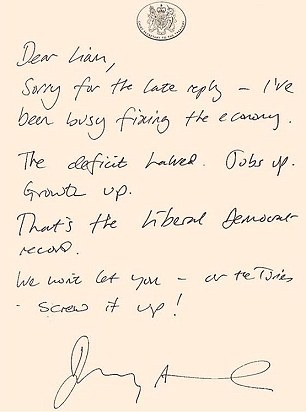 Dear Liam,
Sorry for the late reply – I've
been busy fixing the economy.
The deficit halved. Jobs up.
Growth up.
That's the Liberal Democrat
record.
We won't let you – or the Tories
- screw it up!